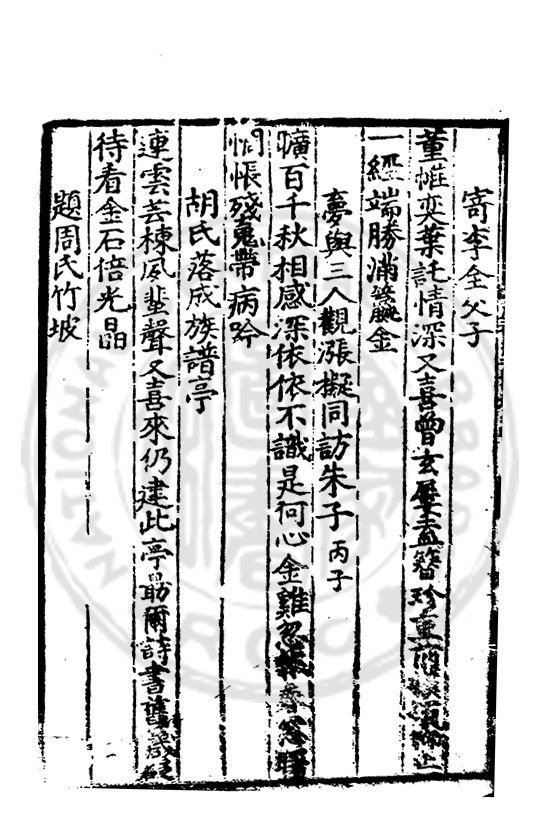 寄李全父子
董帷奕葉託情深又喜曾玄屢盍簪珍重
一經端勝滿籯金
夢與三人觀漲擬同訪朱子丙子
曠百千秋相感深依依不識是何心金雞忽
惆悵殘䰟帶病吟
胡氏落成族譜亭
連雲芸棟夙蜚聲又喜來仍建此亭勗爾詩書舊
待看金石倍光晶
題周氏竹坡